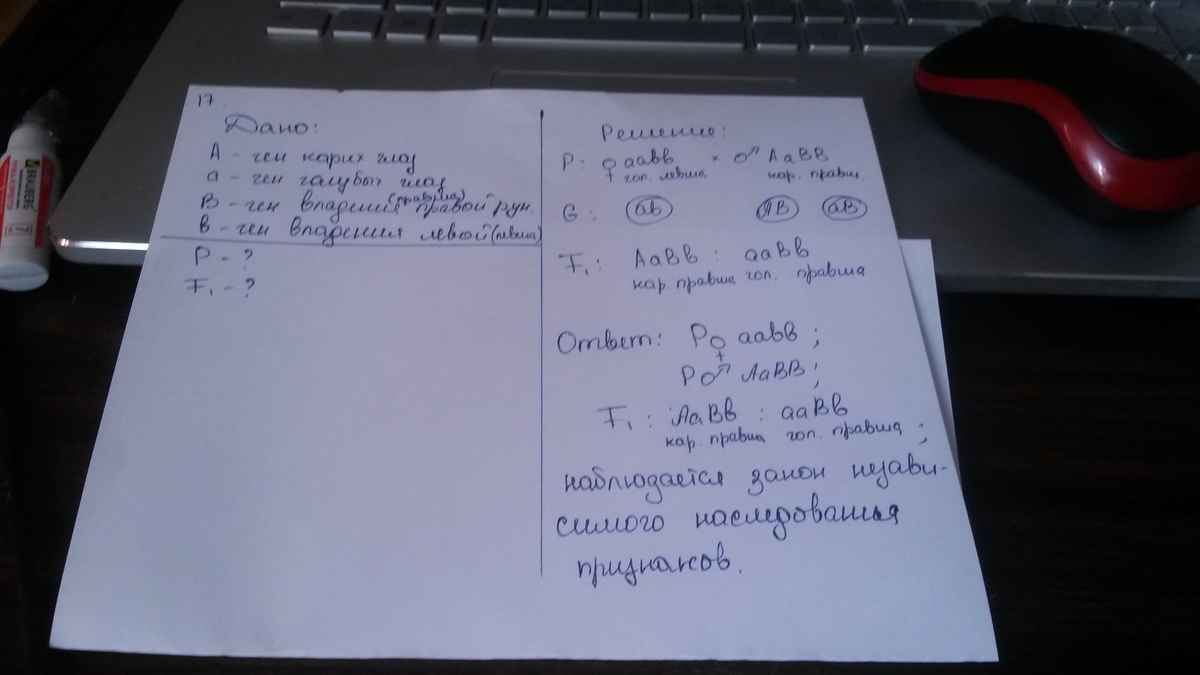 17.
Дано:
А - ген карих глаз
а - ген голубых глаз
(правша)
В - ген владения правой рук.
в - ген владения левой (левша)
Р - ?
F₁ - ?
Решение:
Р: ♀ аавв × ♂ АаВВ
гол. левша кар. правш.
G: ав АВ аВ
F₁: АаВв : ааВв
кар. правша гол. правша
Ответ: Р♀ аавв;
Р♂ АаВВ;
F₁: АаВв : ааВв
кар. правша гол. правша;
наблюдается закон незави-
симого наследованья
признаков.
BRAUBERG